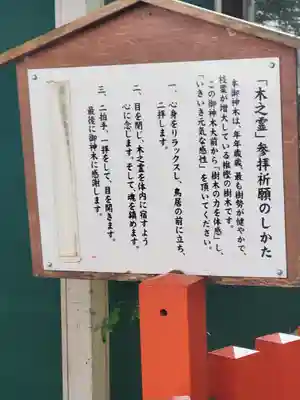 「木之霊」参拝祈願のしかた
本御神木は、年年歳歳、最も樹勢が健やかで、
枝葉が増大している椎樫の樹木です。
この御神木大前から「樹木の力を体感」し、
「いきいき元気な感性」を頂いてください。
一、心身をリラックスし、鳥居の前に立ち、
二拝します。
二、目を閉じ、木之霊を体内に宿すよう
心に念じます。そして、魂を鎮めます。
三、二拍手、一拝をして、目を開きます。
最後に御神木に感謝します。